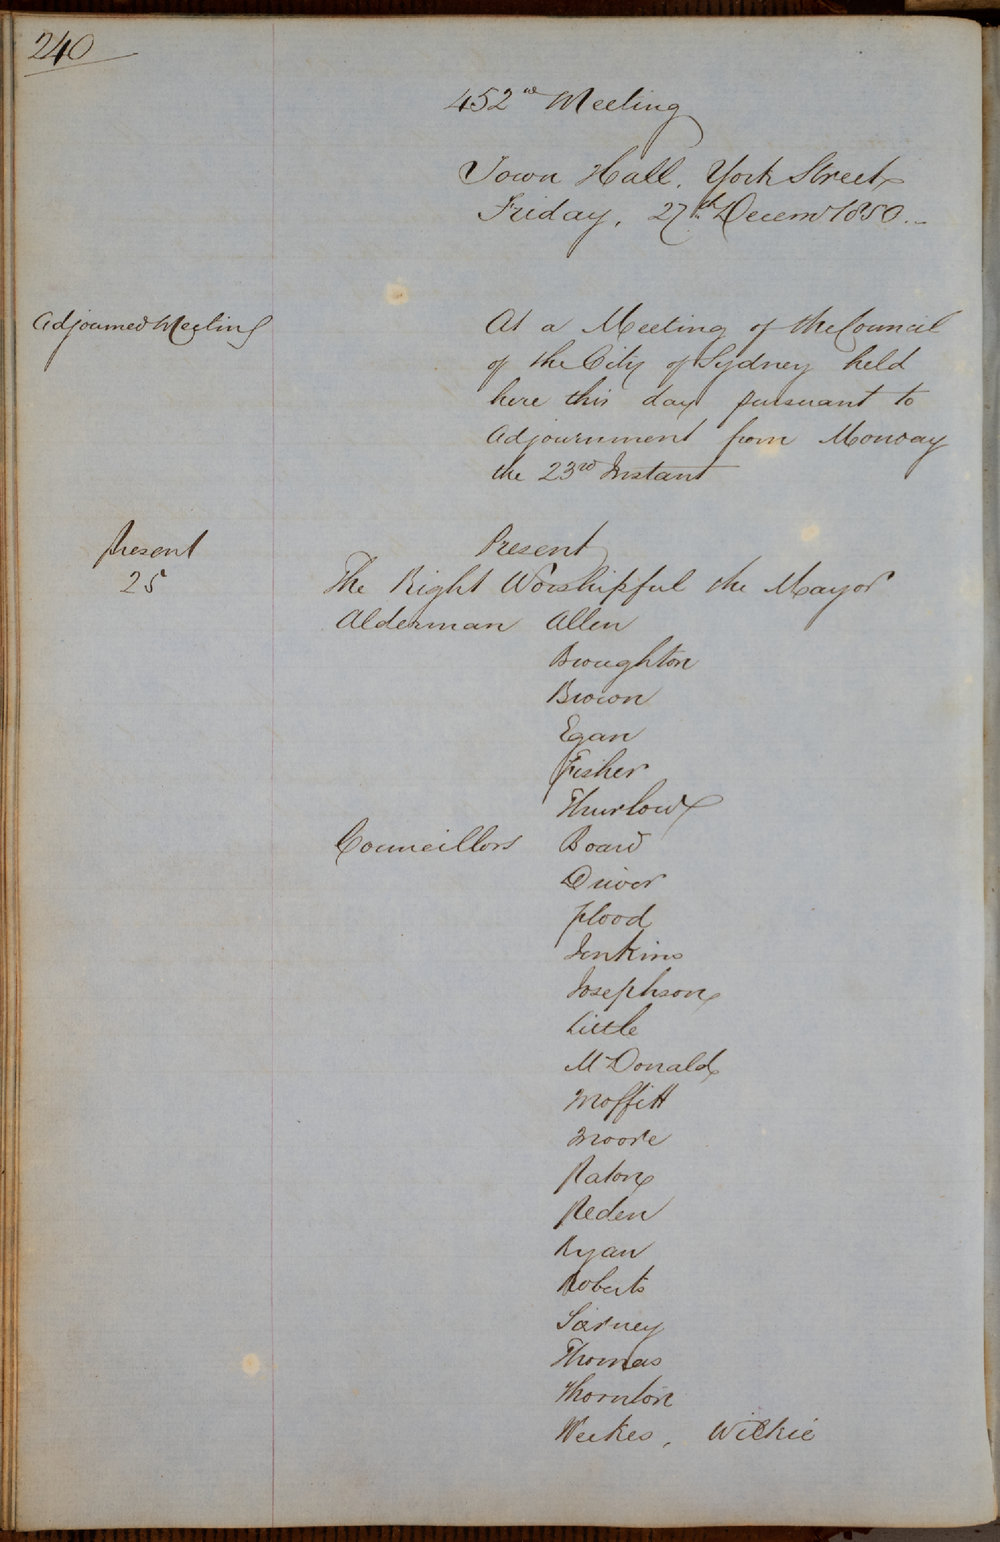 240
452nd Meeting
Town Hall. York Street
Friday, 27th Decemr 1850
Adjourned Meeting
At a Meeting of the Council
of the City of Sydney held
here this day pursuant to
Adjournment from Monday
the 23rd Instant
Present
25
Present
The Right Worshipful the Mayor
Alderman Allen
Broughton
Brown
Egan
Fisher
Thurlow
Councillors Board
Driver
Flood
Jenkins
Josephson
Little
McDonald
Moffitt
Moore
Paton
Peden
Ryan
Roberts
Thomas
Thornton
Weekes, Wilkie